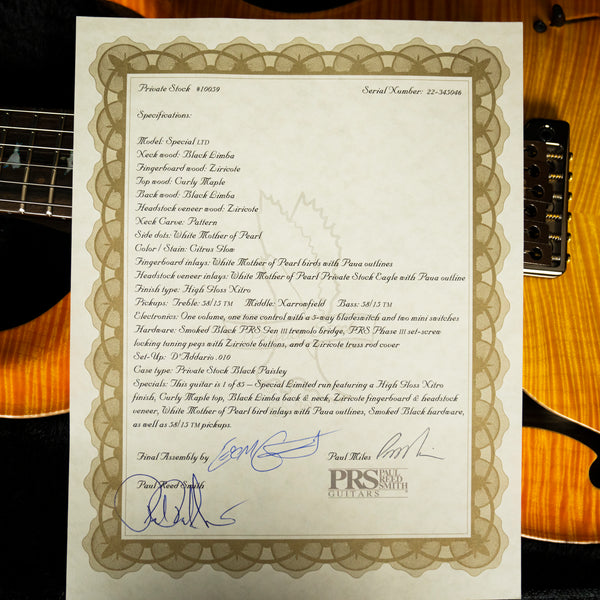 Private Stock #10039 Serial Number: 22-345046
Specifications:
Model: Special LTD
Neck wood: Black Limba
Fingerboard wood: Ziricote
Top wood: Curly Maple
Back wood: Black Limba
Headstock veneer wood: Ziricote
Neck Carve: Pattern
Side dots: White Mother of Pearl
Color / Stain: Citrus Glow
Fingerboard inlays: White Mother of Pearl birds with Paua outlines
Headstock veneer inlays: White Mother of Pearl Private Stock Eagle with Paua outline
Finish type: High Gloss Nitro
Pickups: Treble: 58/15 TM Middle: Narrowfield Bass: 58/15 TM
Electronics: One volume, one tone control with a 5-way bladeswitch and two mini switches
Hardware: Smoked Black PRS Gen III tremolo bridge, PRS Phase III set-screw
locking tuning pegs with Ziricote buttons, and a Ziricote truss rod cover
Set-Up: D'Addario .010
Case type: Private Stock Black Paisley
Specials: This guitar is 1 of 85 – Special Limited run featuring a High Gloss Nitro
finish, Curly Maple top, Black Limba back & neck, Ziricote fingerboard & headstock
veneer, White Mother of Pearl bird inlays with Paua outlines, Smoked Black hardware,
as well as 58/15 TM pickups.
Final Assembly by
Paul Miles
Paul Reed Smith
PRS PAUL REED SMITH
GUITARS